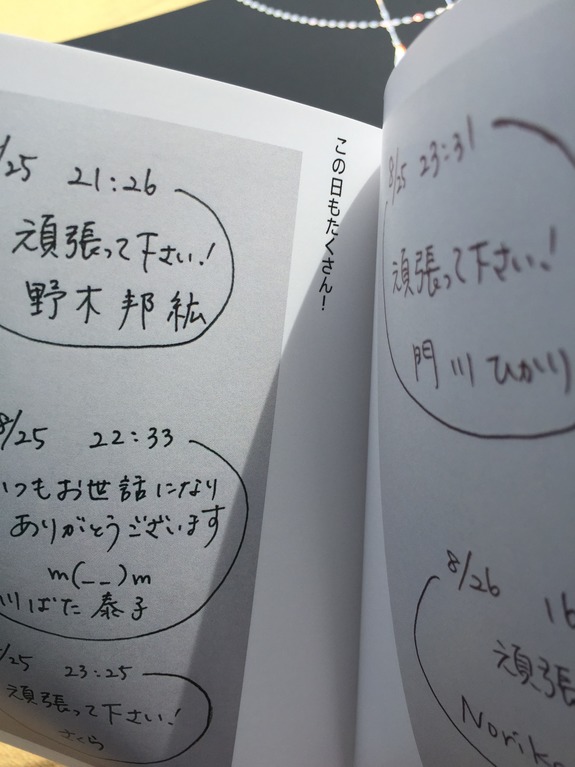 /25 21:26
頑張って下さい!
野木邦紘
8/25 22:33
いつもお世話になり
ありがとうございます
m(__)m
川ばた泰子
/25 23:25
頑張って下さい!
さくら
この日もたくさん!
8/25 23:31
頑張って下さい!
門川ひかり
8/26 16
頑張
Noriko